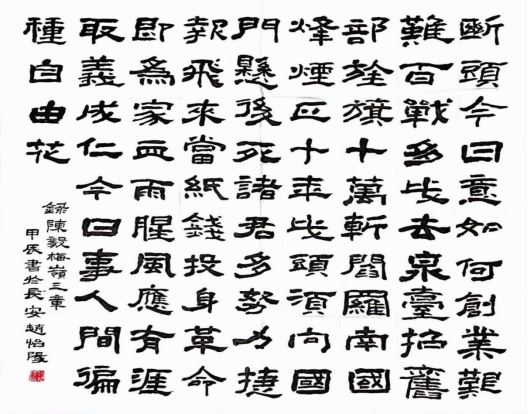 斷頭今日意如何創業艱
難百戰多此去泉臺招舊
部旌旗十萬斬閻羅南國
烽煙正十年此頭須向國
門懸後死諸君多努力捷
報飛來當紙錢投身革命
即爲家血雨腥風應有涯
取義成仁今日事人間徧
種自由花
錄陳毅梅嶺三章
甲辰書於長安趙怡